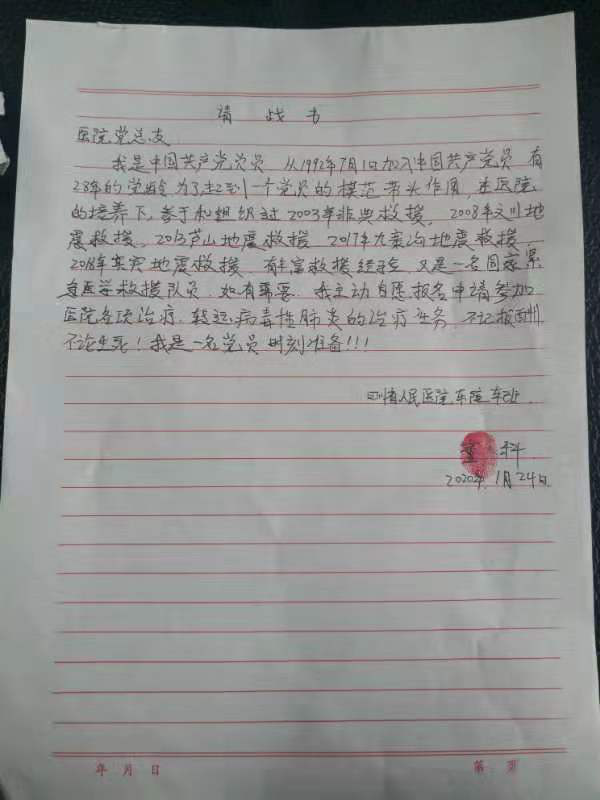 请战书
医院党总支
我是中国共产党党员 从1992年7月1日加入中国共产党员 有
28年的党龄 为了起到一个党员的模范带头作用,在医院
的培养下,参于和组织过2003年非典救援,2008年汶川地
震救援,2013芦山地震救援 2017年九寨沟地震救援,
2018年 地震救援 有丰富救援经验 又是一名国家紧
急医学救援队员,如有需要 我主动自愿报名申请参加
医院各项治疗,转运病毒性肺炎的治疗任务,不记报酬
不论生死!我是一名党员 时刻准备!!!
四川省人民医院东院车班.
科
2020年.1月24日.
年 月 日
第 页